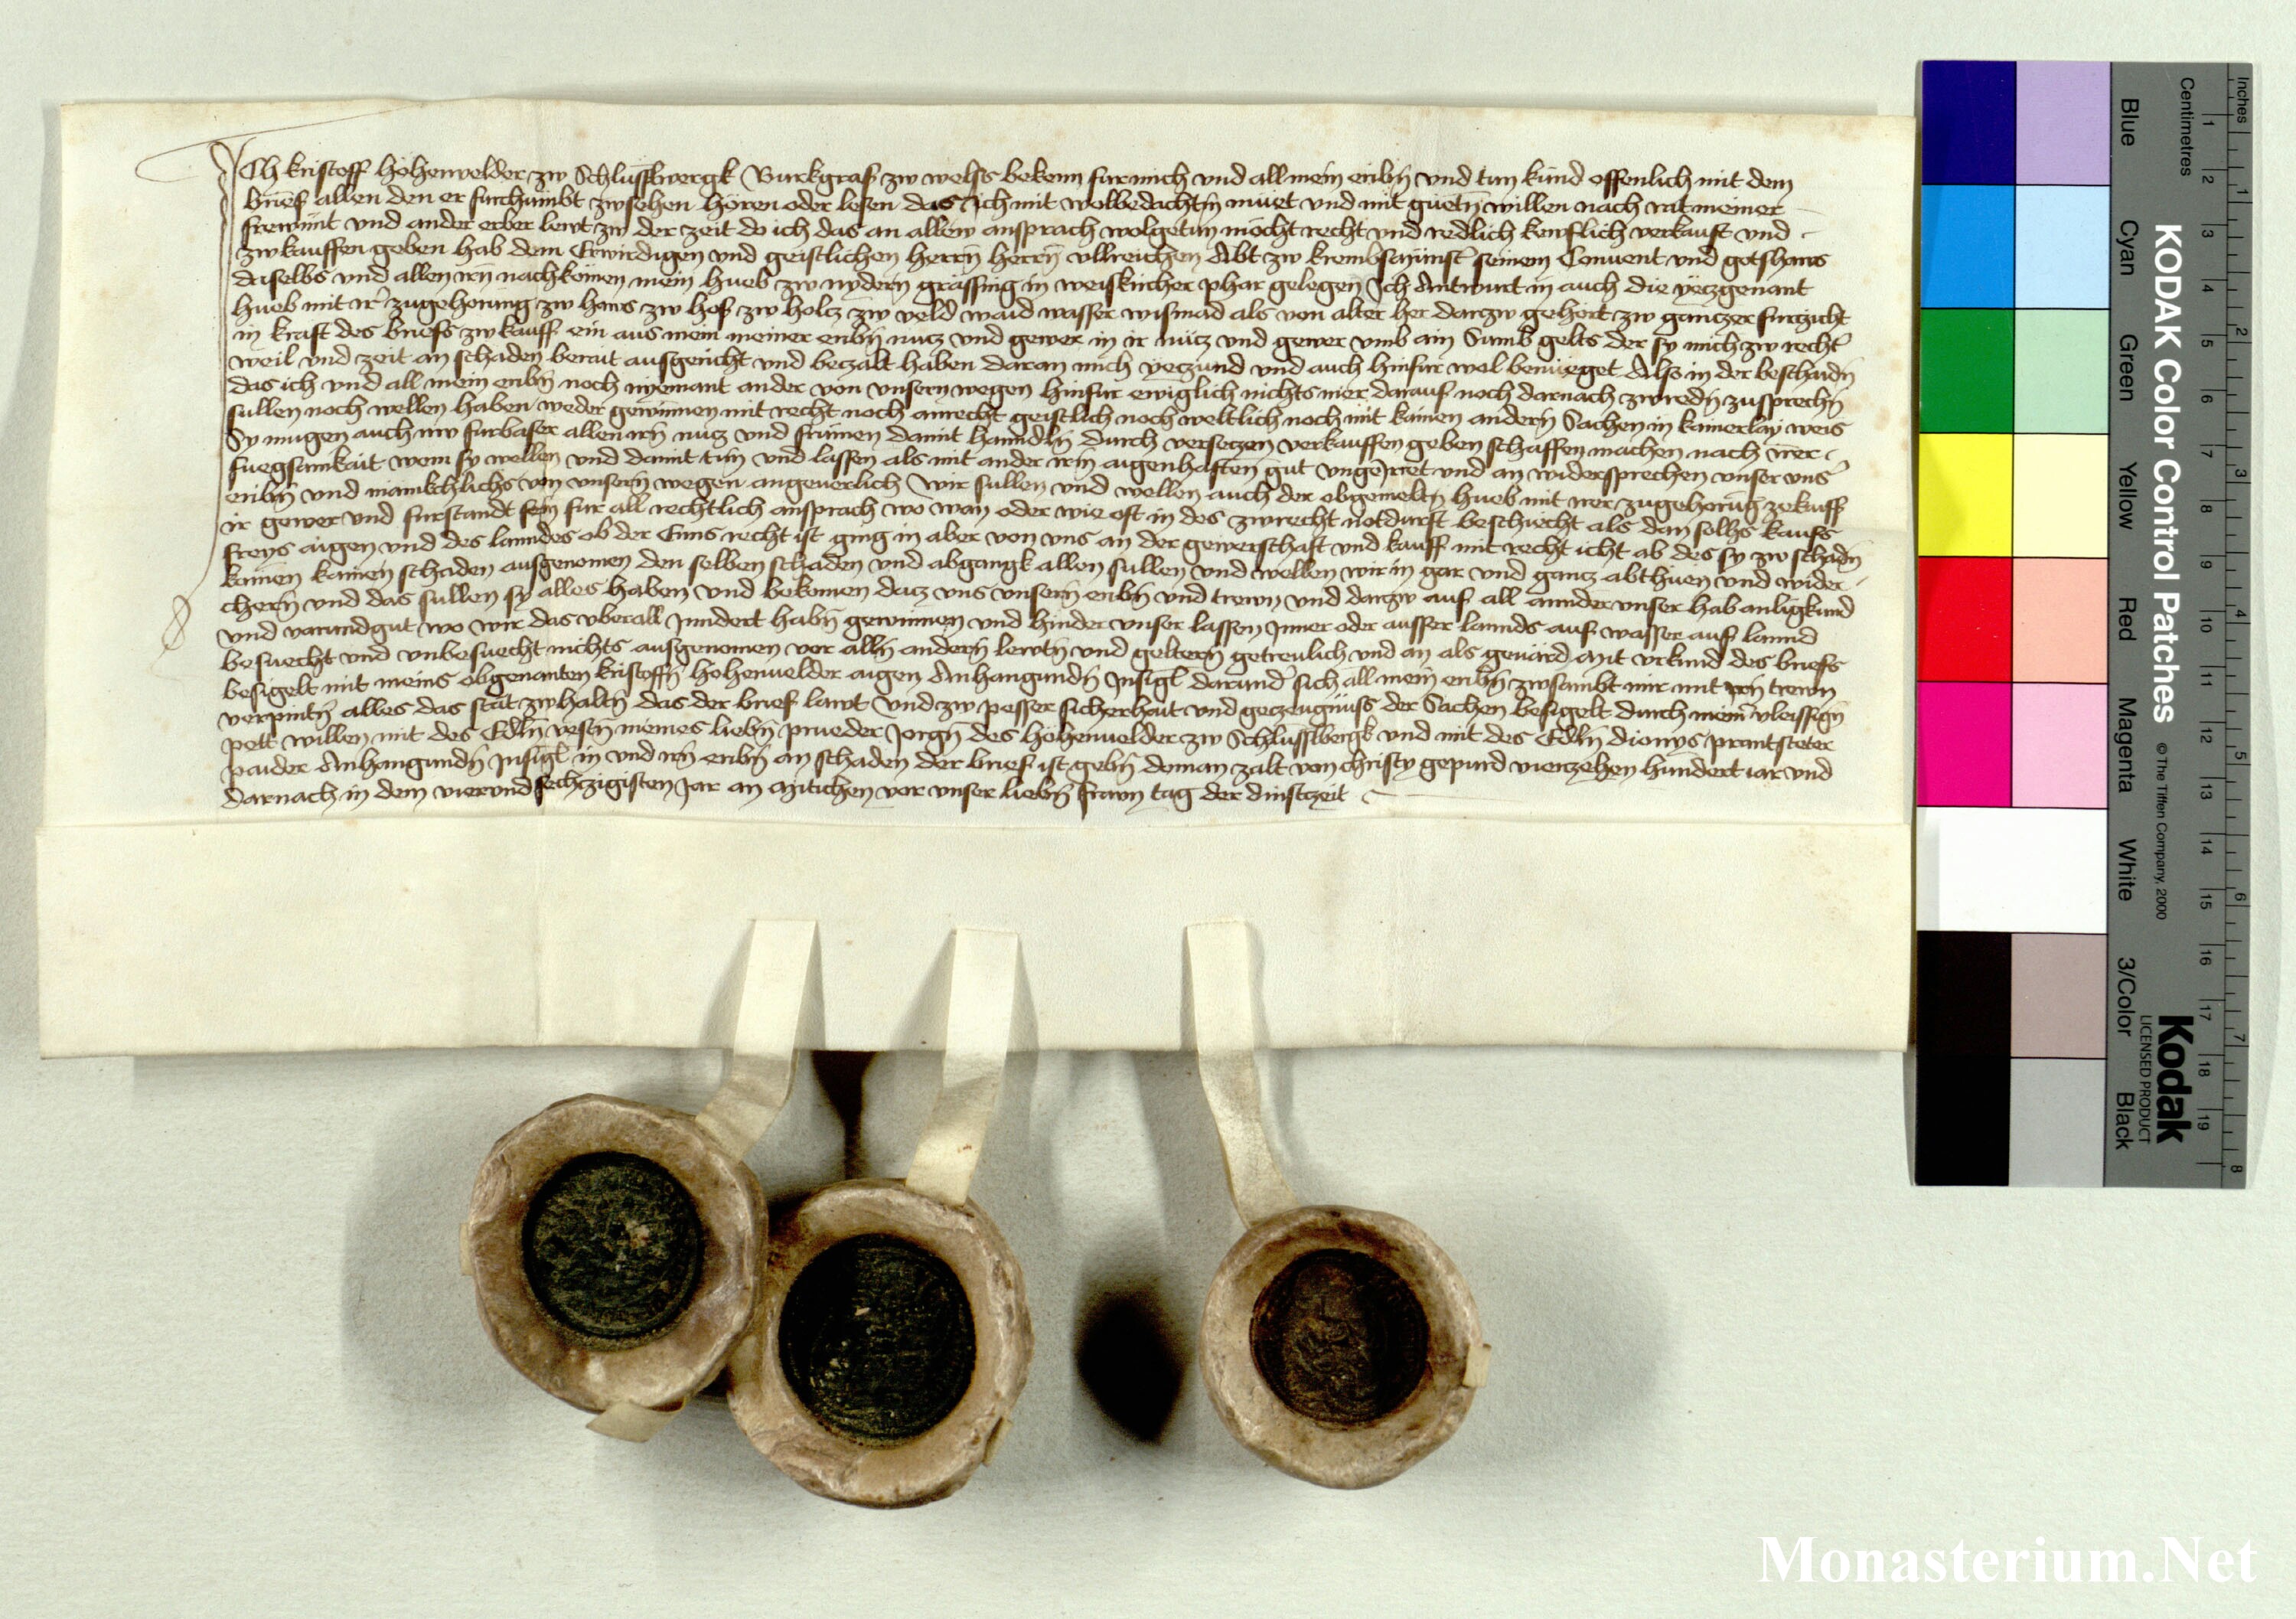 Ich kristoff hohenvelder zw Schlüsslbergk Burkgraf zw welss bekenn fur mich vnd all mein eribn̄ vnd tun kund offenlich mit dem
brief allen den er furchümbt zw sehen hören oder lesen das ich mit wolbedachtn̄ müet vnd mit guetn̄ willen nach rat meiner
frewnnt vnd ander erber lewt zw der zeit do ich das an allew ansprach wolgetun möcht recht vnd redlich kewflich verkauft vnd
zw kauffen geben hab dem Erwirdigen vnd geistlichen herrn̄ herrn̄ vllreichen Abt zw krembsmünst̄ seinem Conuent vnd gotshaws
daselbs vnd allen irn nachkömen mein hueb zw nydern̄ grässing in weiskircher phar gelegen Ich Antwurt in auch die yeczgenant
hueb mit ir̄ zugehorung zw haws zw hof zw holcz zw veld waid wasser wismad als von alter her darzw gehört zw ganczer furczicht
in kraft des briefs zw kauff ein aus mein meiner eribn̄ nucz vnd gewer in ir nücz vnd gewer vmb ain Sumb gelts der sy mich zw recht̄
weil vnd zeit an schaden berait ausgericht vnd beczalt haben daran mich yeczund vnd auch hinfur wol benüeget Also in der beschaidn̄
das ich vnd all mein eribn̄ noch nyemant ander von vnsern wegen hinfur ewiglich nichts mer darauf noch darnach zw redn̄ zusprechn̄
sullen noch wellen haben weder gewinnen mit recht noch anrecht geistlich noch weltlich noch mit kainen andern̄ Sachen in kainerlay weis
Sy mugen auch nw furbaser allen irn̄ nucz vnd frümen damit hanndln̄ durch versetzen verkauffen geben schaffen machen nach irer
fuegsamkait wem sy wellen vnd damit tün vnd lassen als mit ander irn̄ aigenhaften gut vngeirret vnd an widersprechen vnser vns̄
eribn̄ vnd mänikchlichs von vnsern̄ wegen angeuerlich Wir sullen vnd wellen auch der obgemeltn̄ hueb mit irer zugehorūg zekauff
ir gewer vnd furstandt sein fur all rechtlich ansprach wo wan oder wie oft in des zw recht notdurft beschiecht als dan solhs kaufs
freys aigen vnd des lanndes ob der Enns recht ist ging in aber von vns an der gewerschaft vnd kauff mit recht icht ab des sy zw schadn̄
kämen kainen schaden ausgenomen den selben schaden vnd abgangk allen sullen vnd wellen wir in gar vnd gancz abthüen vnd wider
chern̄ vnd das sullen sy alles haben vnd bekomen dacz vns vnsern̄ eribn̄ vnd trewn vnd darzw auf all annder vnser hab anligkund
vnd varundgut wo wir das vberall Inndert habn̄ gewinnen vnd hinder vnser lassen Inner oder ausser lannds auf wasser auf lannd
besuecht vnd vnbesuecht nichts ausgenomen vor alln̄ andern̄ lewtn̄ vnd geltern̄ getreulich vnd an als geuärd Mit vrkund des briefs
besigelt mit meins obgenanten kristoffn̄ hohenuelder aigen Anhangundn̄ Insigl̄ darund̄ sich all mein eribn̄ zw sambt mir mit irn̄ trewn
verpintn̄ alles das stät zw haltn̄ das der brief lawt Vnd zw pesser sicherhait vnd geczeugnüss der Sachen besigelt durch meiner vleissign̄
pett willen mit des Edln̄ vestn̄ meines liebn̄ prueder Jorgn̄ des hohenuelder zw Schlüsslbergk vnd mit des Edln̄ dionys prantsteter
paider Anhangundn̄ Insigl̄ in vnd irn̄ eribn̄ an schaden der brief ist gebn̄ do man zalt von christy gepurd vierzehen hundert iar vnd
darnach in dem vierund sechzigisten Jar an Mitichen vor vnser liebn̄ frawn tag der dinstzeit
KODAK Color Control Patches
© The Tiffen Company, 2000
Kodak
LICENSED PRODUCT
Blue Cyan Green Yellow Red Magenta White 3/Color Black
Inches 1 2 3 4 5 6 7 8
Centimetres 1 2 3 4 5 6 7 8 9 10 11 12 13 14 15 16 17 18 19
Monasterium.Net